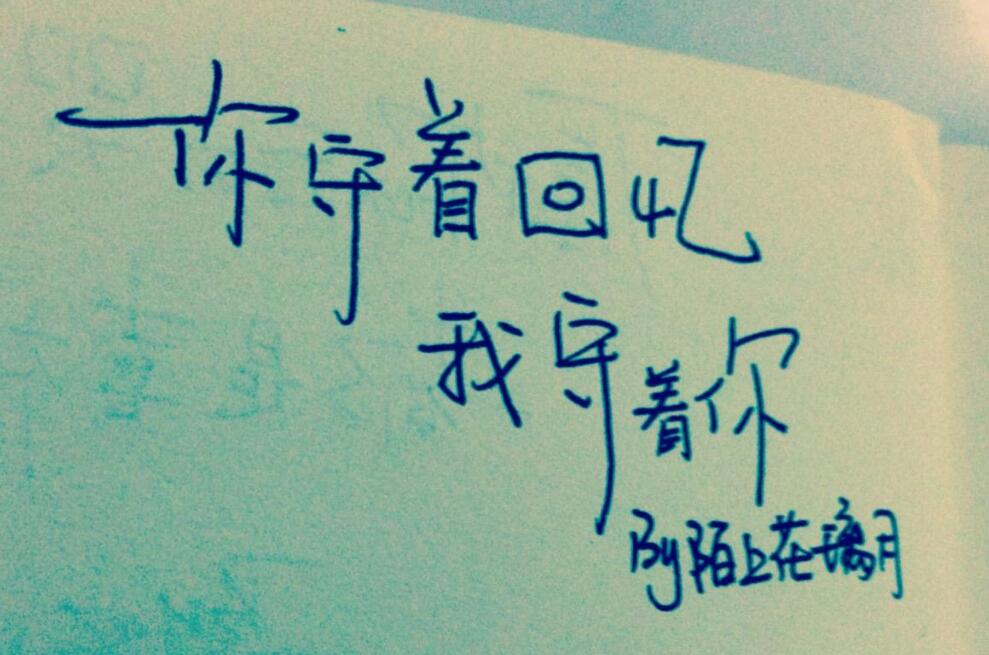 你守着回忆
我守着你
By陌上花璃月